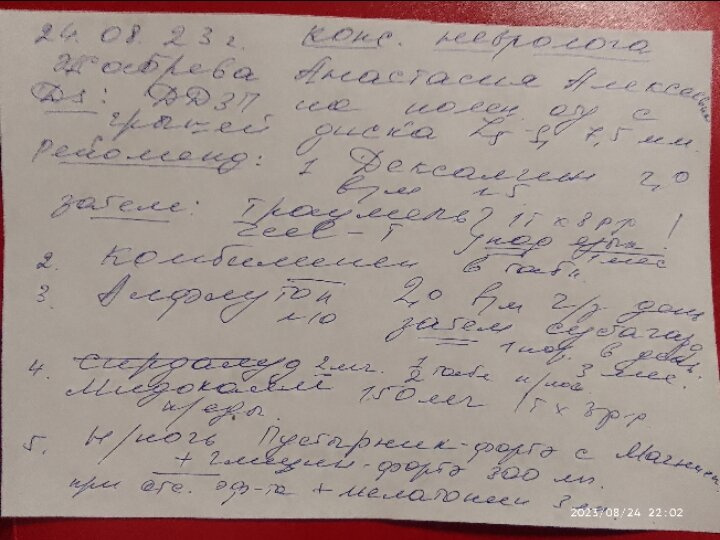 24.08.23 г. конс. невролога
Анастасия Алексеевна
DS: ДДЗП по поясн. отд с
грыжей диска L5-S1 7,5 мм.
Рекоменд: 1 Дексалгин 2,0
в/м n5
затем: Траумель 1т х 3 р.р !
Цель-Т под язык. 1 мес
2. Комбилипен в табл.
3. Алфлутоп 2,0 в/м ч/з день
n10 затем сустагард
1 пор. в день. 3 мес.
4. сирдалуд 2 мг. 1/2 табл н/ноч
Мидокалм 150 мг 1т х 3 р.р.
п/еды.
5. н/ночь Пустырник-форте с Магнием
+ глицин-форте 300 мг.
при отс. эф-та + мелатонин 3
2023/08/24 22:02